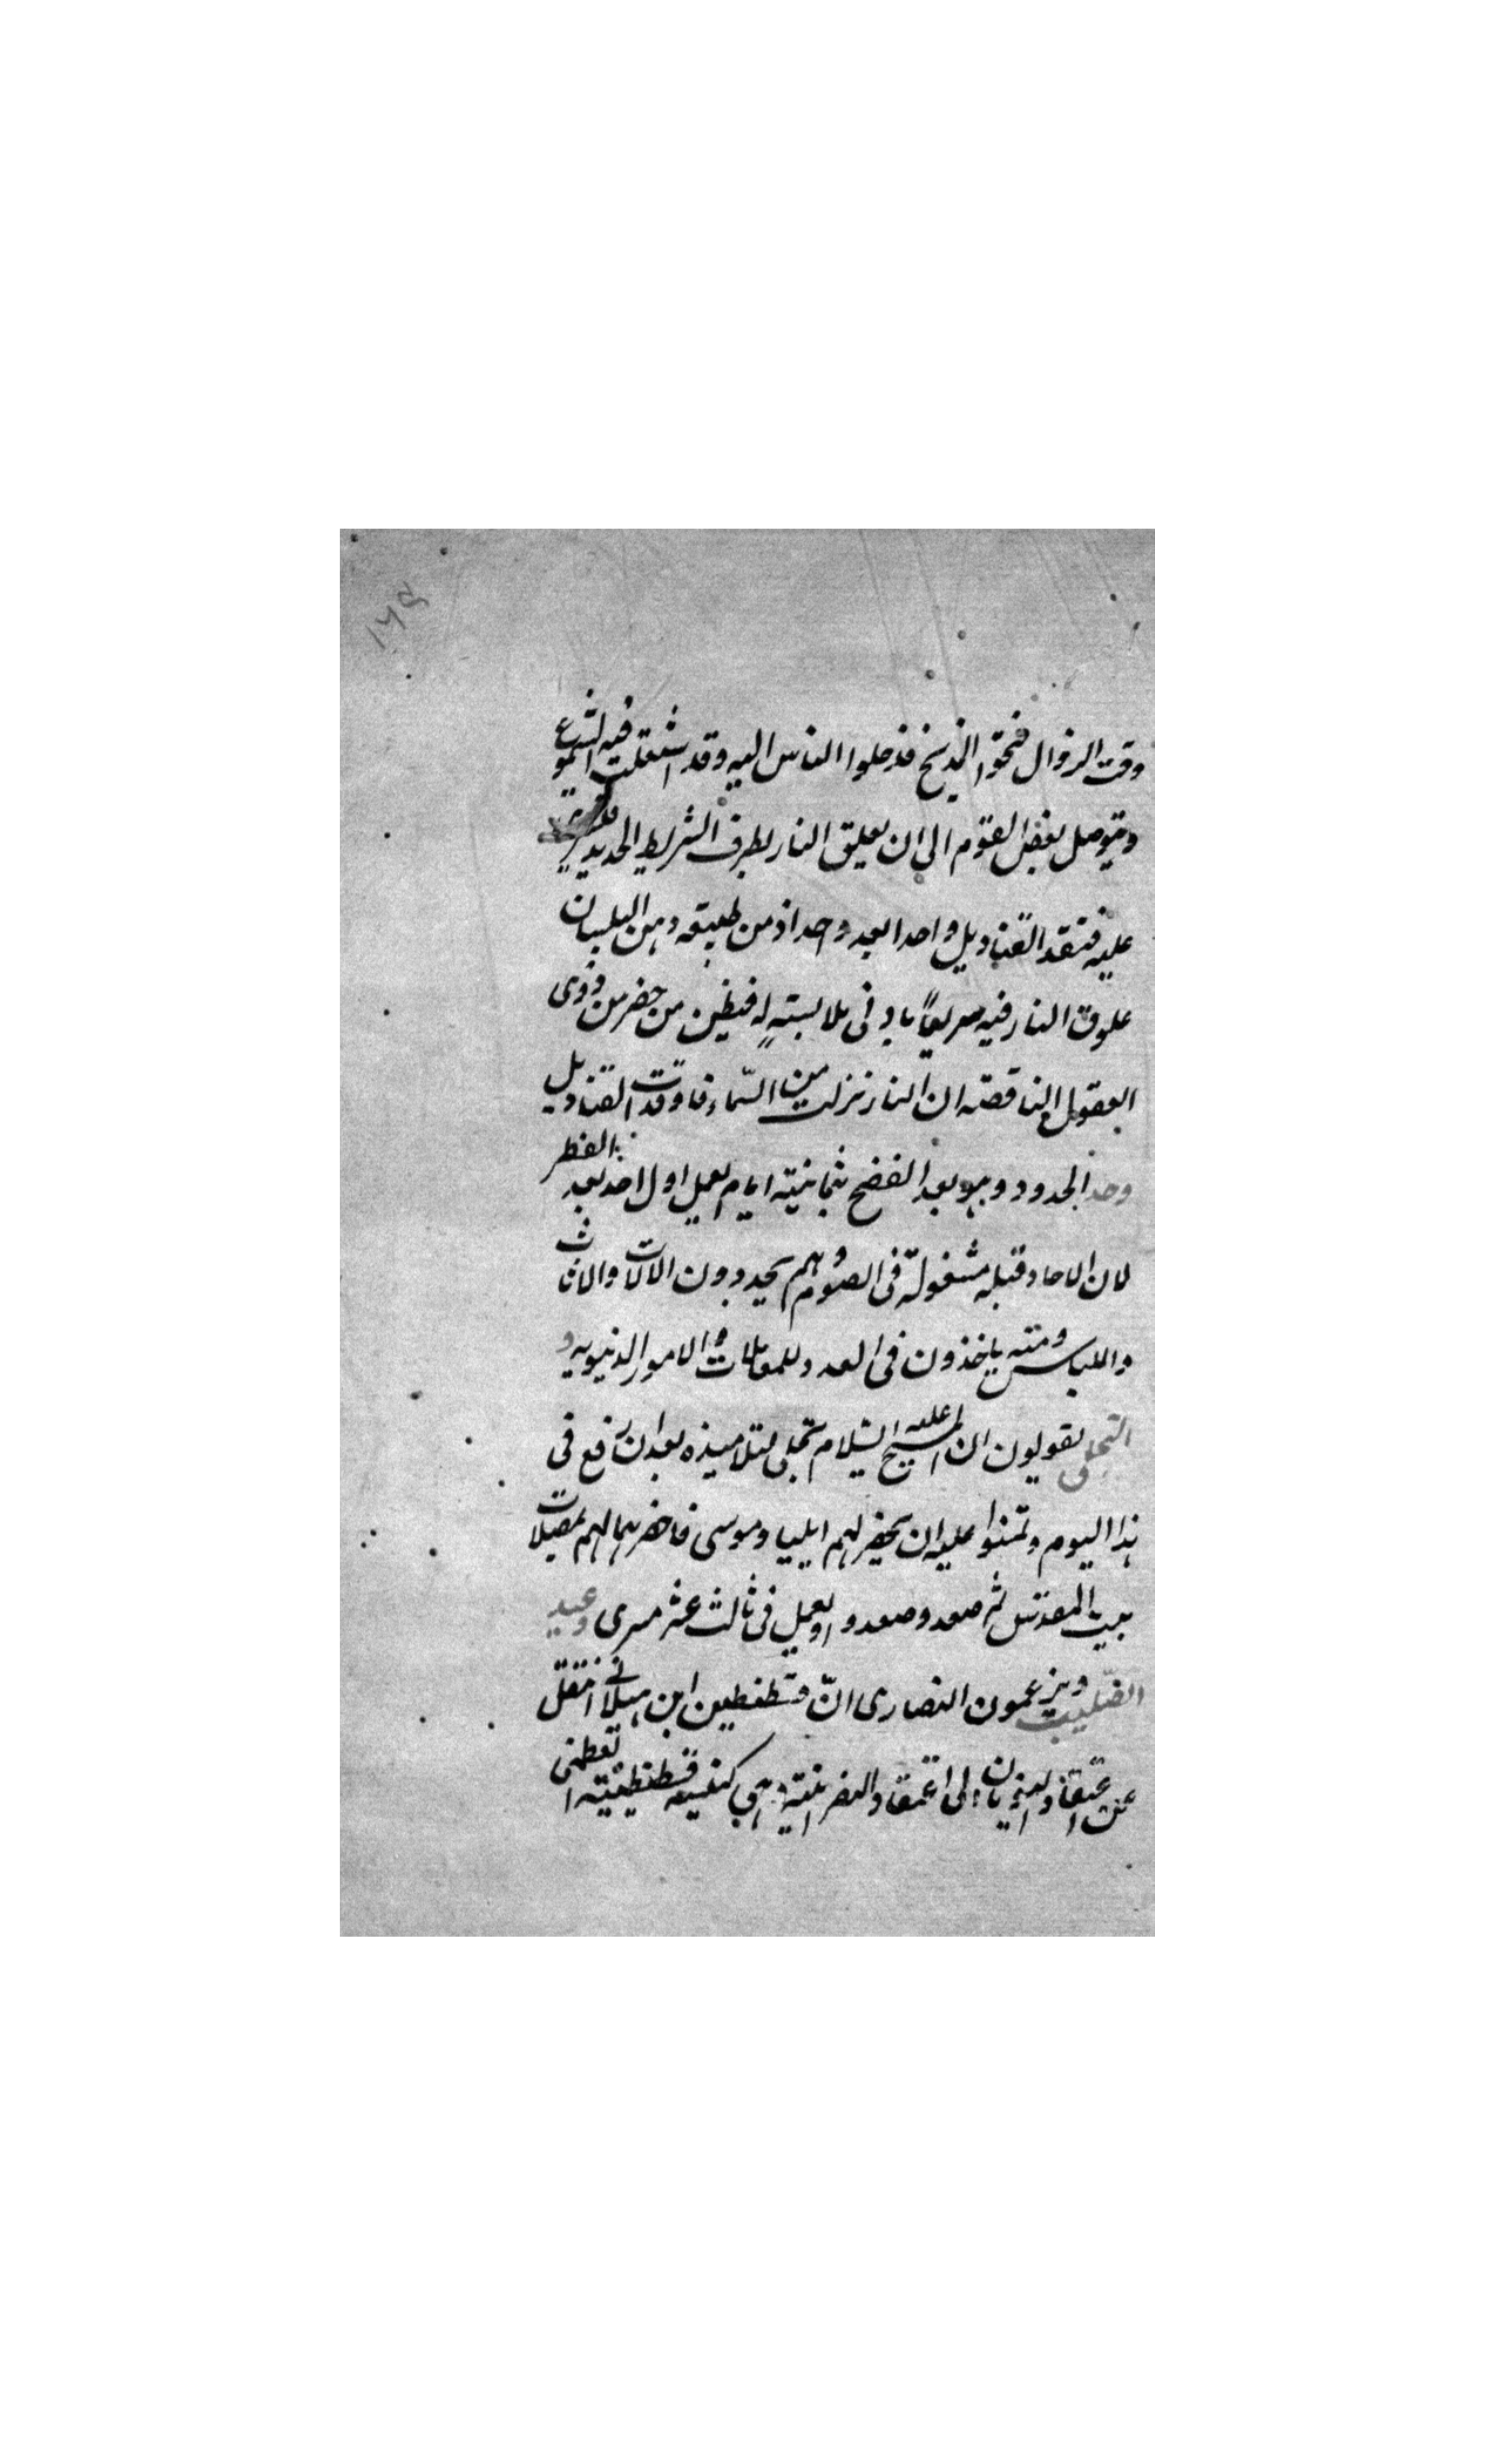 ١٧٩
وقت الزوال فتحوا المذبح فدخلوا الناس اليه وقد اشتعلت فيه الشموع
ويتوصل بعض القوم الى ان يعلق النار بطرف الشريط الحديد
عليه فتقد القناديل واحدا بعد واحد اذ من طبيعة دهن البلسان
علوق النار فيه سريعاً بادنى ملابسته له فيظن من حضر من ذوى
العقول الناقصة ان النار نزلت من السّماء فاوقدت القناديل
وحد الحدود وهو بعد الفصح بثمانية ايام يعمل اول احد بعد الفطر
لان الاحاد قبله مشغولة فى الصوم وهم يجددون الالات والاثاث
واللباس ومنه ياخذون فى العدد للمعاملات والامور الدنيويه و
التجلى يقولون ان المسيح عليه السّلام تجلى لتلاميذه بعد ان رفع فى
هذا اليوم وتمنوا عليه ان يحضر لهم ايليا وموسى فاحضرهما لهم بمصلات
بيت المقدس ثم صعد وصعدوا ويعمل فى ثالث عشر مسرى وعيد
الصّليب ويزعمون النصارى انّ قسطنطين ابن هيلانى انتقل
عن اعتقاد اليونان الى اعتقاد النصرانية وبنى كنيسه قسطنطينية العظمى